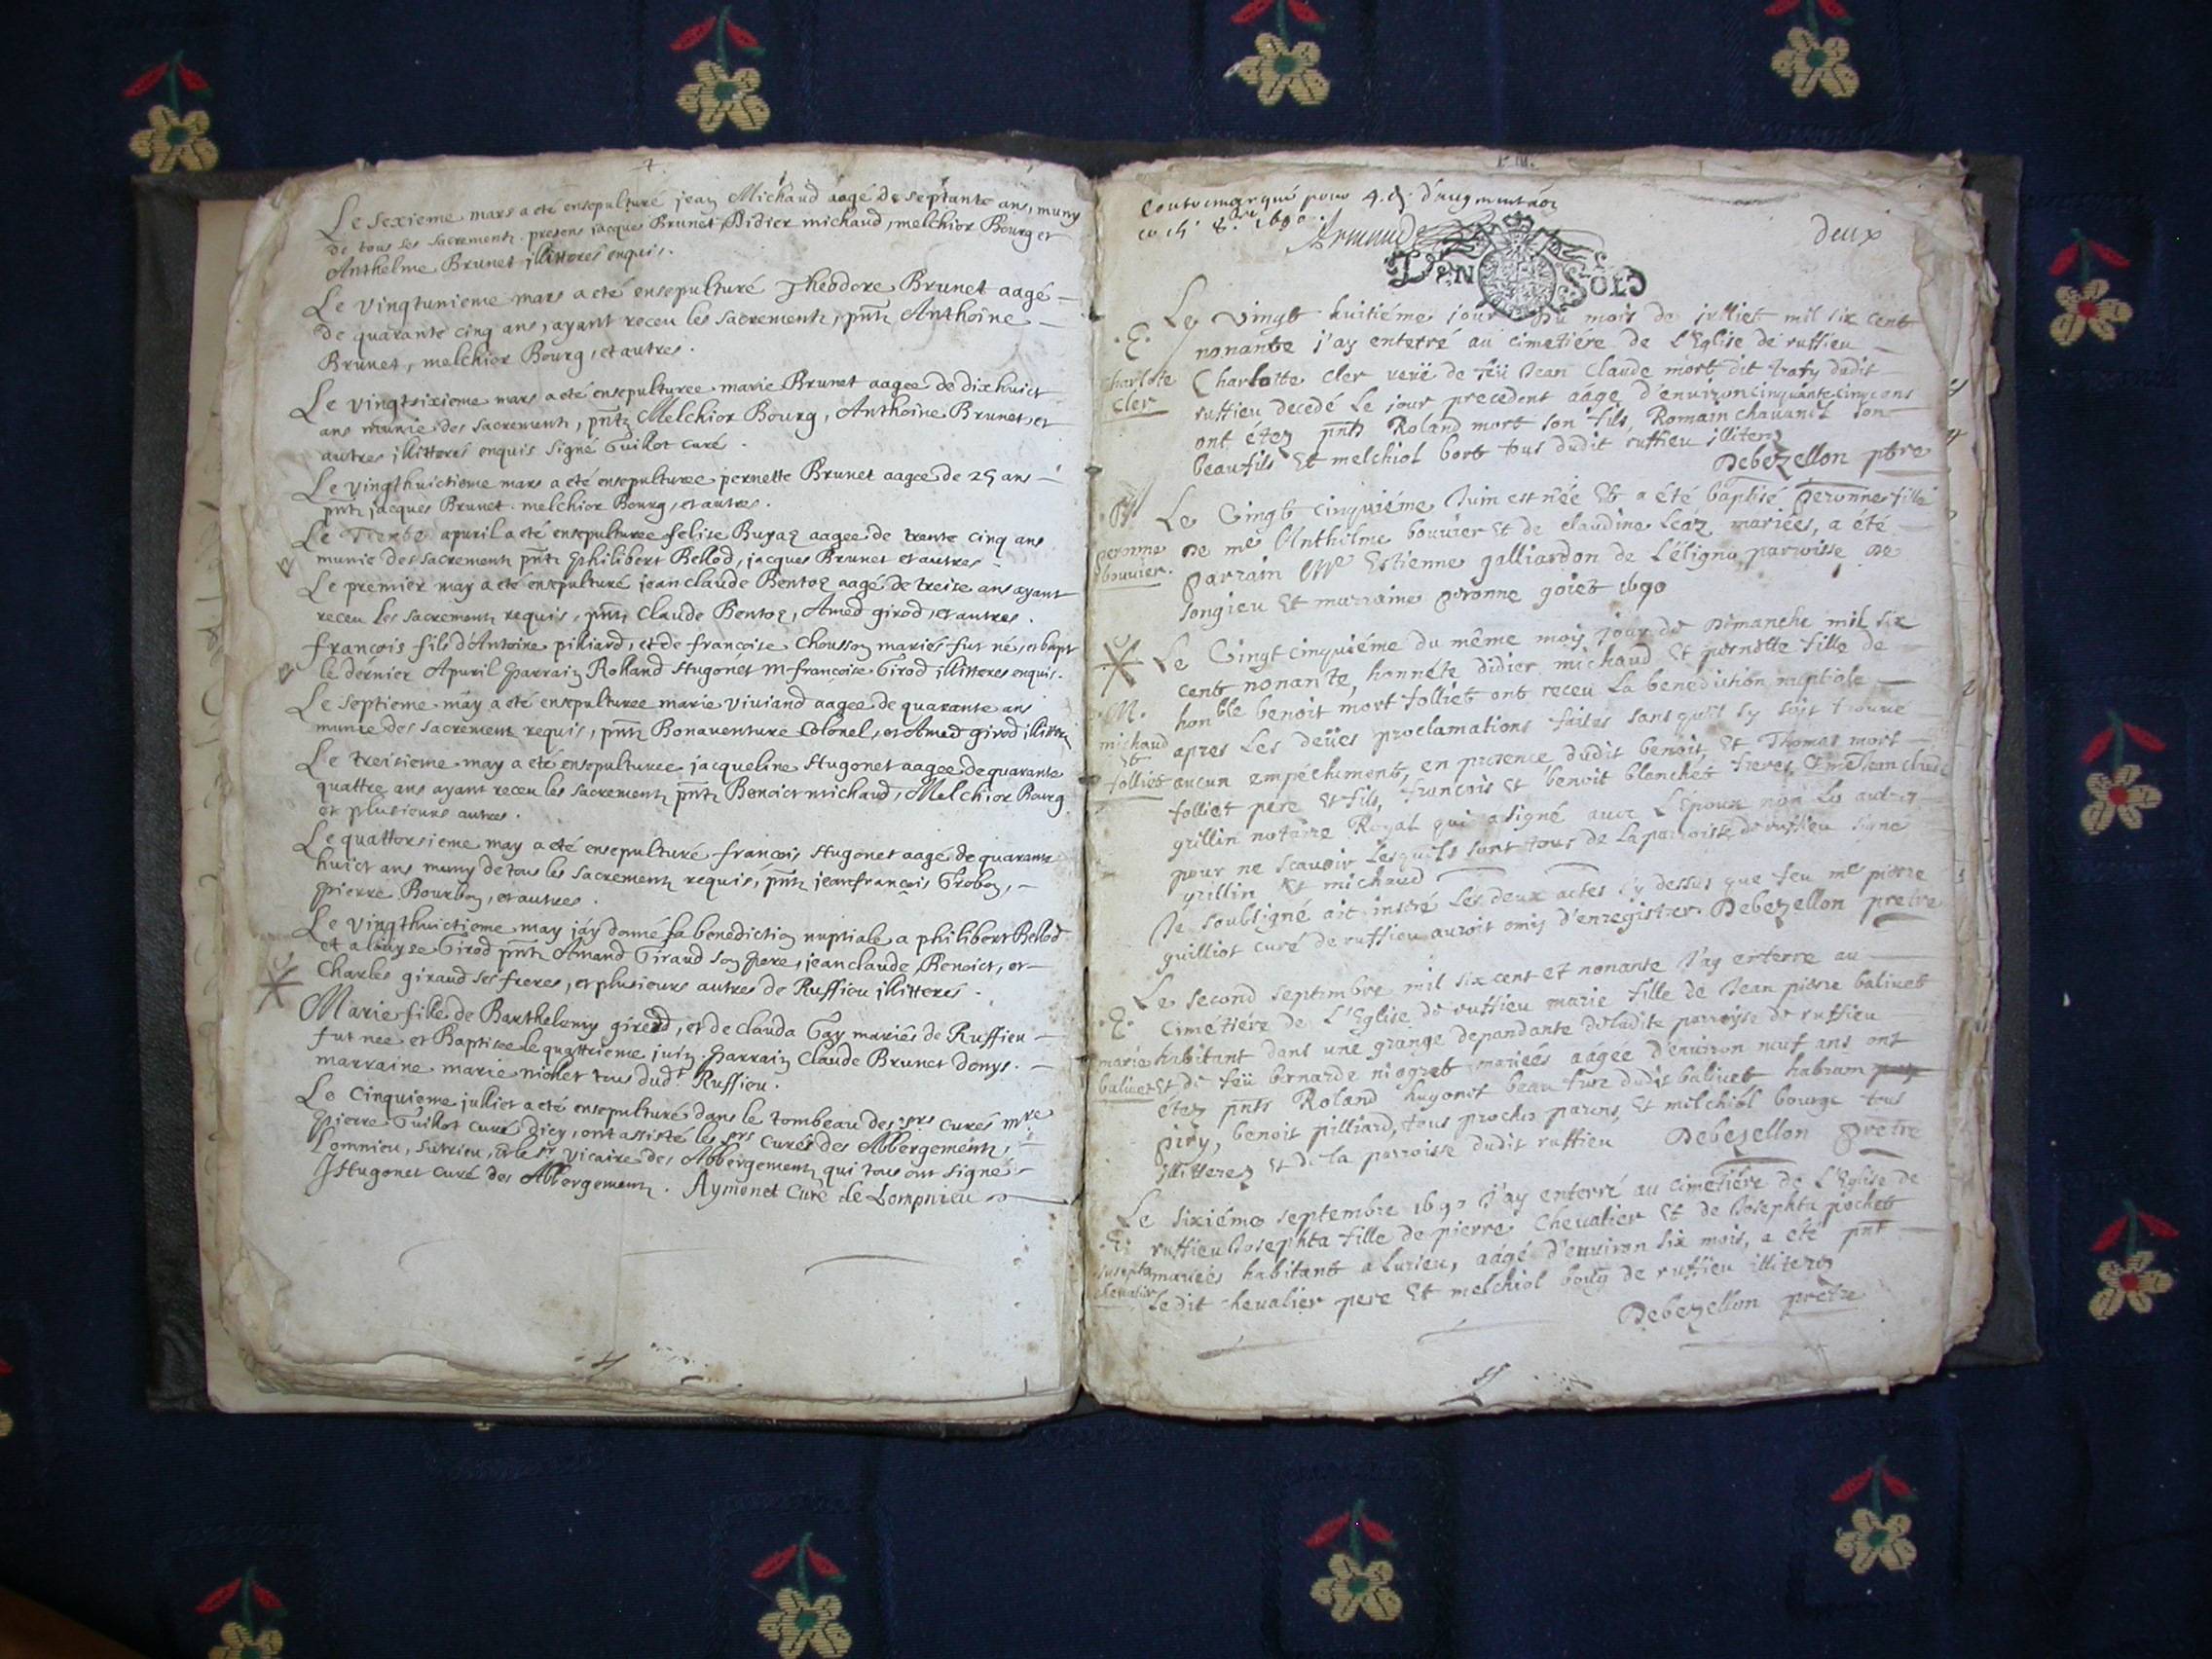 Le sexieme mars a eté ensepulturé jean Michaud aagé de septante ans, muny
de tous les sacrements. presens jacques Brunet, Didier michaud, melchior Bourg et
Anthelme Brunet illitterés enquis.
Le vingtunieme mars a eté ensepulturé Theodore Brunet aagé
de quarante cinq ans, ayant receu les sacrements, pnts Anthoine
Brunet, melchior Bourg, et autres.
Le vingtsixieme mars a eté ensepulturee marie Brunet aagee de dixhuict
ans munie des sacrements, pnts Melchior Bourg, Anthoine Brunet, et
autres illitterés enquis signé Guillot curé.
Le vingthuictieme mars a eté ensepulturee pernette Brunet aagee de 25 ans
pnts jacques Brunet. melchior Bourg, et autres.
Le apuril a eté ensepulturee felise aagee de trente cinq ans
munie des sacrements pnts philibert Bellod, jacques Brunet et autres
Le premier may a eté ensepulturé jean claude Bentoz aagé de treise ans ayant
receu les sacrements requis, pnts Claude Bentoz, Amed girod, et autres.
françois fils d'Antoine pilliard, et de françoise Chousson mariés fut né, et bapt
le dérnier Apuril parrain Rolland Hugonet m françoise Girod illitteres enquis.
Le septieme máy a eté ensepulturee marie viuiand aagee de quarante ans
munie des sacrements requis, pnts Bonauenture Colonel, et Amed girod illitterés
Le treisieme may a eté ensepulturee jacqueline Hugonet aagee de quarante
quattre ans ayant receu les sacrements pnts Benoict michaud, Melchior Bourg
et plusieurs autres.
Le quattorsieme may a eté ensepulturé françois Hugonet aagé de quarante
huict ans muny de tous les sacrements requis, pnts jeanfrançois Grobon,
pierre Bourbon, et autres.
Le vingthuictieme may j'áy donné la benediction nuptiale a philibert Bellod
et a louyse Girod pnts Amand Giraud son pere, jeanclaude, Benoict, et
Charles giraud ses freres, et plusieurs autres de Ruffieu illitterés.
Marie fille de Barthelemy girod, et de clauda Gay mariés de Ruffieu
fut nee et Baptisee le quattrieme juin. parrain Claude Brunet donys.
marraine marie niollet tous dudt Ruffieu.
Le Cinquieme julliet a eté ensepulturé dans le tombeau des srs curés mre
pierre Guillot curé d'icy, ont assisté les srs curés des Abbergements,
Lomnieu, sutrieu, et le sr vicaire des Abbergements qui tous ont signé
J Hugonet curé des Abbergements. Aymonet curé de Lompnieu
Contremarqué pour 4. d. d'augmentaon
ce 1690.
deux
DEN SOLS
Le Vingt huitiéme jour du mois de julliet mil six cent
.E. nonante j'ay enterré au cimetiére de l'Eglise de ruffieu
Charlote Charlotte cler veuë de feü Jean Claude mort dit dudit
Cler ruffieu decedé le jour precedent áágé d'enuiron cinquante cinq ans
ont étez pnts Roland mort son fils, Romain chauanit son
beaufils Et melchiol bort tous dudit ruffieu illiterez
Debezellon ptre
Le Vingt cinquiéme Juin est née Et a été baptisé peronne fille
peronne de me Anthilme bouuier Et de claudine leáz mariées, a été
bouuier. parrain Me Estienne galliardon de Léligna parroisse de
songieu Et marraine peronne goiet 1690
Le Vingt cinquiéme du même mois jour de Dimanche mil six
cent nonante, honnéte didier michaud Et pernette fille de
.M. honble benoit mort folliet ont receu la benediction nuptiale
michaud apres les deües proclamations faites sans qu'il sy soit trouué
Et
folliet aucun empéchement, en presence dudit benoit, Et Thomas mort
folliet pere Et fils, françois Et benoit blanchet freres Et me Jean claude
grillin notaire Royal qui a signé auec l'Epoux non les autres
pour ne scauoir lesquels sont tous de la parroisse de ruffieu signé
grillin Et michaud
Je soubsigné ait inséré les deux actes cy dessus que feu me pierre
guilliot curé de ruffieu auroit omis d'enregistrer. Debezellon pretre
Le second septembre mil six cent et nonante J'ay enterre au
.E. cimétiére de l'Eglise de ruffieu marie fille de Jean pierre baliuet
marie habitant dans une grange dependante deladite parroisse de ruffieu
baliuet Et de feü bernarde niogret mariées áágée d'enuiron neuf ans ont
étez pnts Roland hugonet beau frere dudit baliuet habram
piéy, benoit pilliard, tous proches parens, Et milchiol bourge tous
illitterez Et de la parroisse dudit ruffieu Debezellon pretre
Le sixiéme septembre 1690 J'ay enterré au cimetiére de l'Eglise de
.E. ruffieu Josephta fille de pierre Cheualier Et de Josephta pochet
Josephta mariées habitant a lurieu, áágé d'enuiron six mois, a été pnt
cheualier ledit cheualier pere Et melchiol boug de ruffieu illiterez
Debezellon pretre